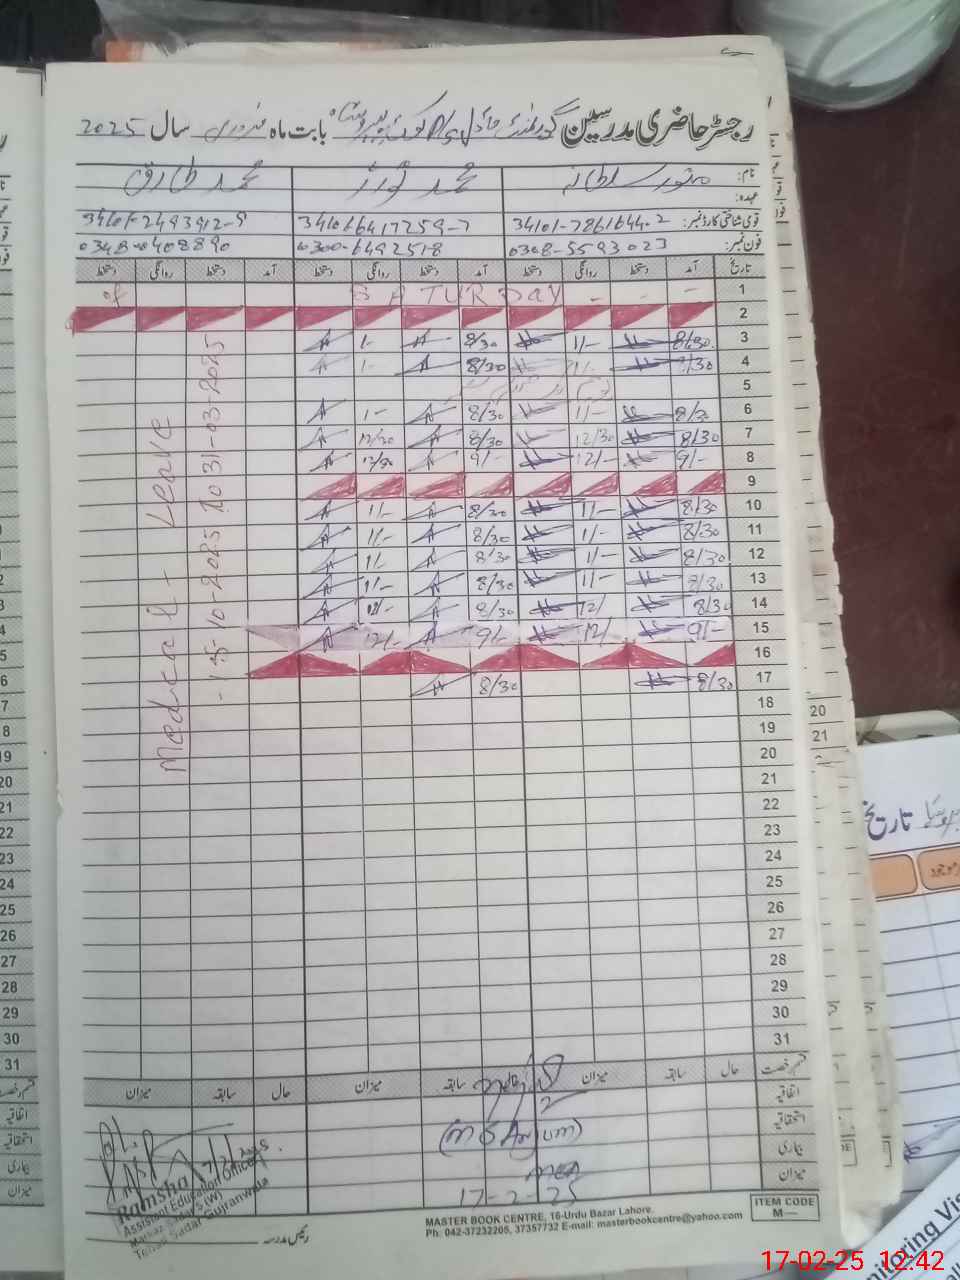 رجسٹر حاضری مدرسین گورنمنٹ ماڈل P/S کوٹ پیرو شاہ بابت ماہ فروری سال 2025
نام: منور سلطانہ محمد نواز محمد طارق
عہدہ:
قومی شناختی کارڈ نمبر: 34101-7861644-2 34101-6417259-7 34101-2493912-9
فون نمبر: 0308-5593023 0300-6492518 0348-0408890
تاریخ آمد دستخط روانگی دستخط آمد دستخط روانگی دستخط آمد دستخط روانگی دستخط
1 SATURDAY off
2
3 8/30 1/- 8/30 1/-
4 8/30 1/- 8/30 1/-
5
6 8/30 1/- 8/30 1/-
7 8/30 12/30 8/30 12/30
8 9/- 12/- 9/- 12/30
9
10 8/30 1/- 8/30 1/-
11 8/30 1/- 8/30 1/-
12 8/30 1/- 8/30 1/-
13 8/30 1/- 8/30 1/-
14 8/30 12/ 8/30 12/-
15 9/- 12/ 9/- 12/-
16
17 8/30 8/30
18
19
20
21
22
23
24
25
26
27
28
29
30
31
Medical - Leave
-15-10-2025 To 31-03-2025
قسم رخصت حال سابقہ میزان حال سابقہ میزان حال سابقہ میزان
اتفاقیہ
استحقاقیہ
بیماری
میزان
(M S Anjum)
MEA
17-2-25
Ramsha
Assistant Education Officer
(W)
Tehsil Sadar Gujranwala
رئیس مدرسہ
MASTER BOOK CENTRE, 16-Urdu Bazar Lahore.
Ph: 042-37232205, 37357732 E-mail: masterbookcentre@yahoo.com
ITEM CODE
M—
20
21
تاریخ
nitoring Vis
17-02-25 12:42